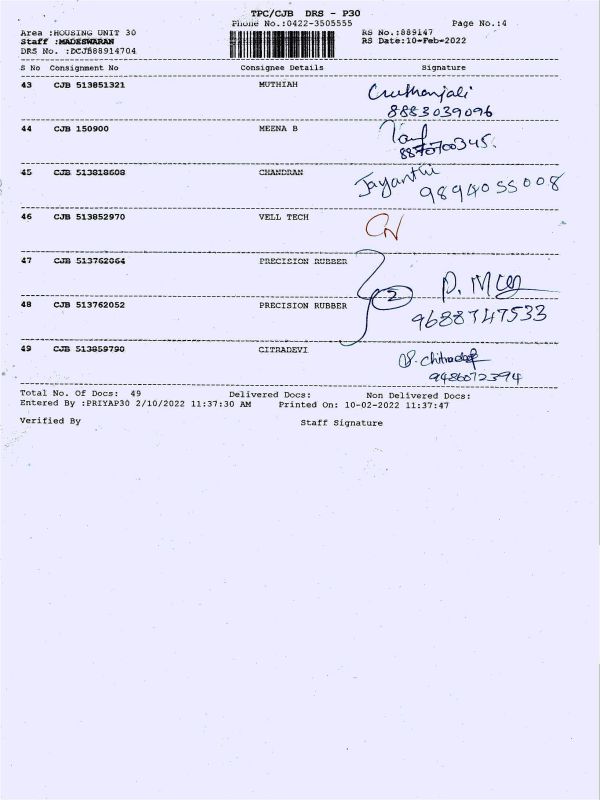 TPC/CJB DRS - P30
Phone No.:0422-3505555 Page No.:4
Area :HOUSING UNIT 30 RS No.:889147
Staff :MADESWARAN RS Date:10-Feb-2022
DRS No. :DCJB88914704
S No Consignment No Consignee Details Signature
43 CJB 513851321 MUTHIAH
8883039096
44 CJB 150900 MEENA B
8870700345.
45 CJB 513818608 CHANDRAN Jayanthi
9894055008
46 CJB 513852970 VELL TECH
47 CJB 513762064 PRECISION RUBBER
2
48 CJB 513762052 PRECISION RUBBER 9688747533
49 CJB 513859790 CITRADEVI
9486072394
Total No. Of Docs: 49 Delivered Docs: Non Delivered Docs:
Entered By :PRIYAP30 2/10/2022 11:37:30 AM Printed On: 10-02-2022 11:37:47
Verified By Staff Signature